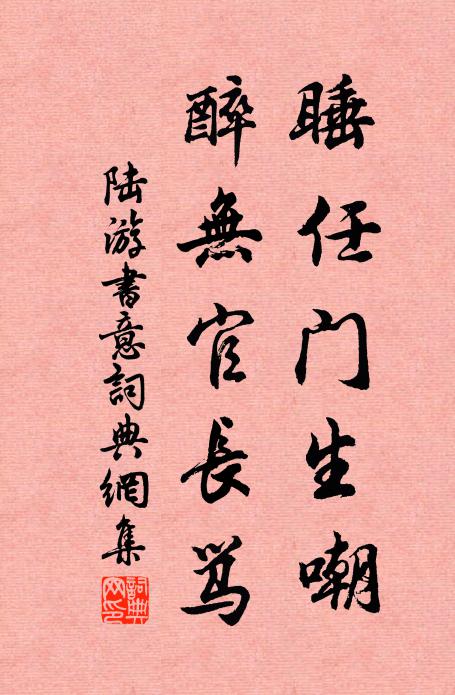 睡任门生嘲
醉無官長骂
陆游書意詞典網集
詞典网印